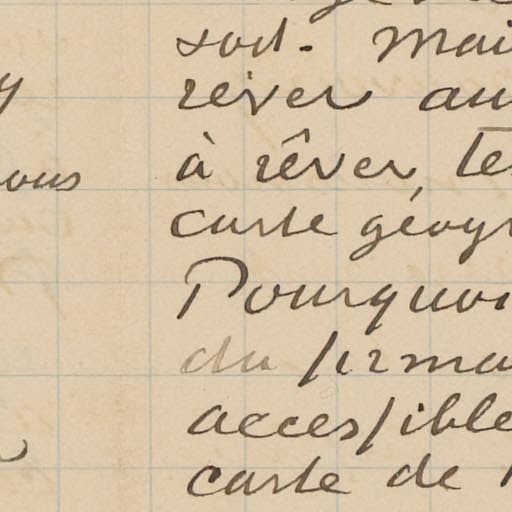 soit. Mai
rêver au
ous
à rêver, te
carte géogr
Pourquoi
du firma
accessible
carte de